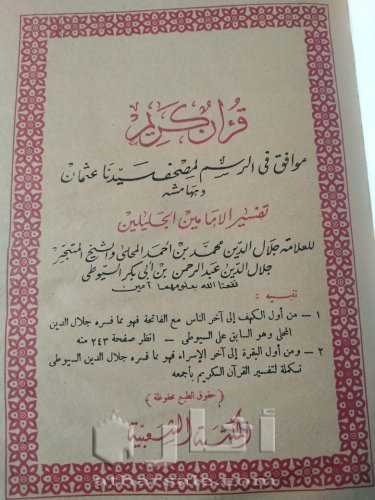 قرآن كريم
موافق في الرسم لمصحف سيدنا عثمان
وبهامشه
تفسير الإمامين الجليلين
للعلامة جلال الدين محمد بن احمد المحلى والشيخ المتبحر
جلال الدين عبد الرحمن بن ابى بكر السيوطى
نفعنا الله بعلومهما آمين
تنبيه :
١ — من أول الكهف إلى آخر الناس مع الفاتحة فهو مما فسره جلال الدين
المحلى وهو السابق على السيوطى — انظر صفحة ٢٤٣ منه
٢ — ومن أول البقرة إلى آخر الإسراء فهو مما فسره جلال الدين السيوطى
تكملة لتفسير القرآن الكريم بأجمعه
( حقوق الطبع محفوظة )
المكتبة الشعبية